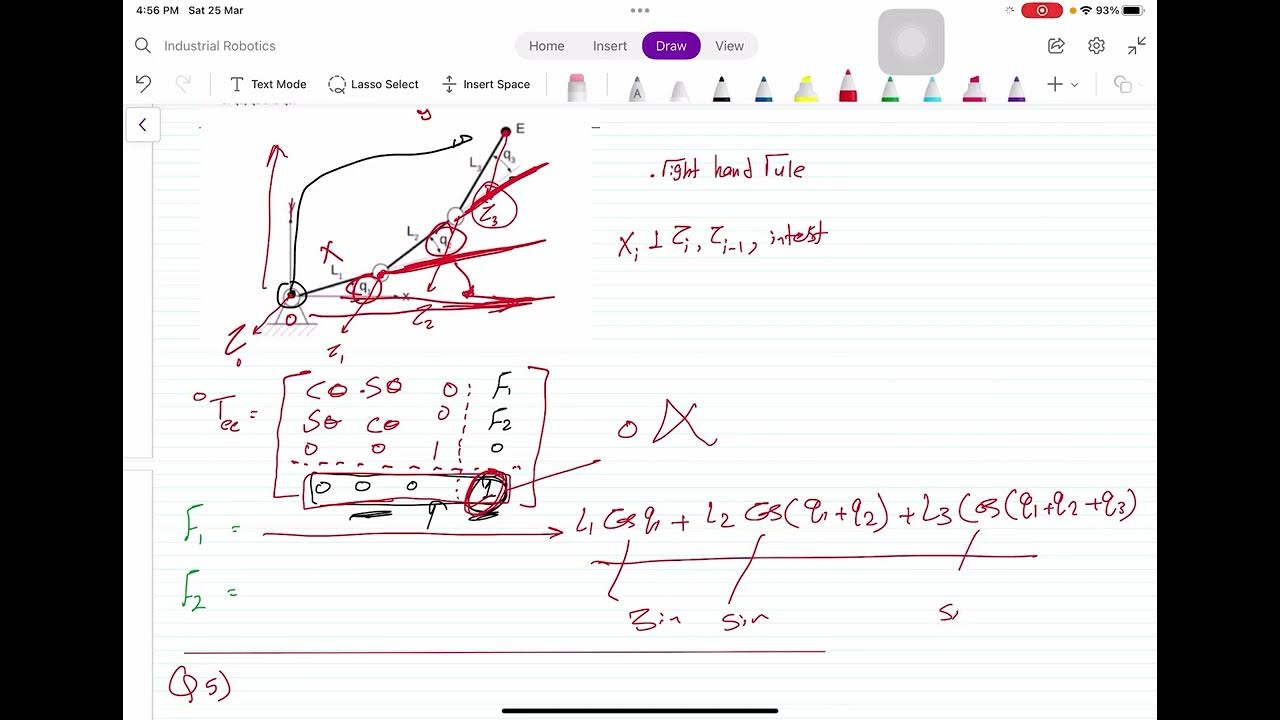 4:56 PM Sat 25 Mar
93%
Industrial Robotics
Home Insert Draw View
Text Mode Lasso Select Insert Space
A
y
E
L3 q3
Z3
.right hand rule
L2 q
Xi ⊥ Zi, Zi-1, intest
X
L1 q1 x
0
Z2
Z0
Z1
0Tee =
cθ -sθ 0 F1
sθ cθ 0 F2
0 0 1 0
0 0 0 1
0
F1 = L1 Cos q1 + L2 Cos(q1+q2) + L3 Cos(q1+q2+q3)
F2 =
Sin Sin S
Q5)